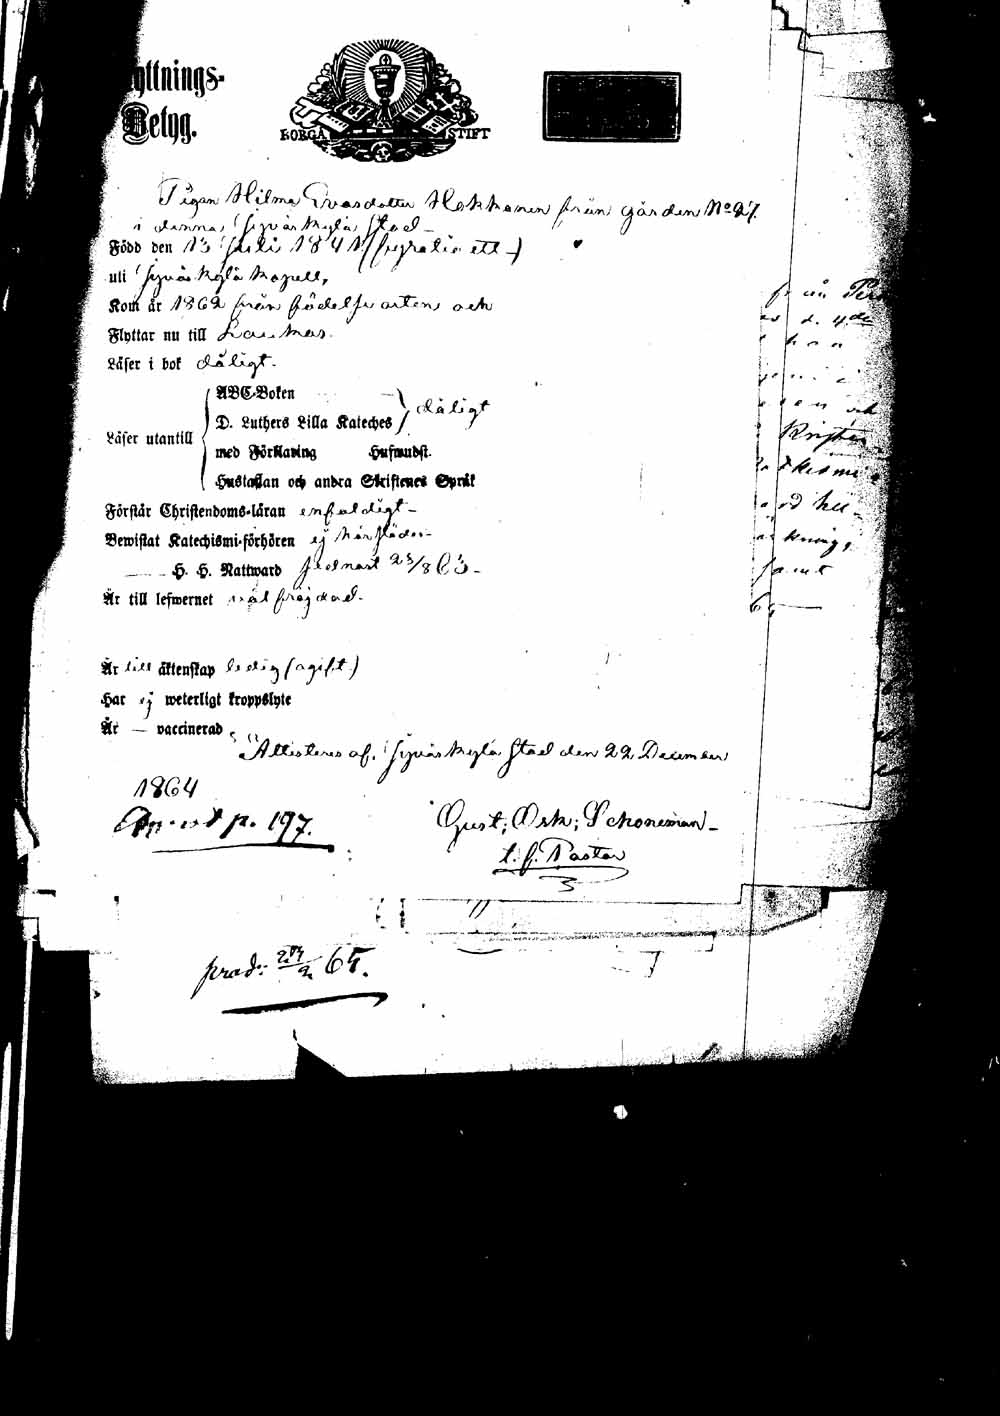 yttnings-
Betyg.
BORGÅ STIFT
Pigan Hilma Ivarsdotter Hokkanen från gården No 27.
i denna Jyväskylä Stad -
Född den 13 Juli 1841 (fyratio ett -)
uti Jyväskylä Kapell,
Kom år 1862 från födelse orten och
Flyttar nu till Laukas.
Läser i bok dåligt.
ABC-Boken
D. Luthers Lilla Kateches dåligt
Läser utantill
med Förklaring Hufwudst.
Hustaflan och andra Skriftenes Språk
Förstår Christendoms-läran enfaldigt -
Bewistat Katechismi-förhören ej härstädes -
H. H. Nattward sednast 23/8 63 -
Är till lefwernet väl frejdad.
Är till äktenskap ledig (ogift.)
Har ej weterligt kroppslyte
Är — vaccinerad
Attesteras af. Jyväskylä Stad den 22 December
1864
p. 197.
Gust; Osk; Schoneman -
t. f. Pastor
prod: 65.
från
d. 4de
han
och
samt